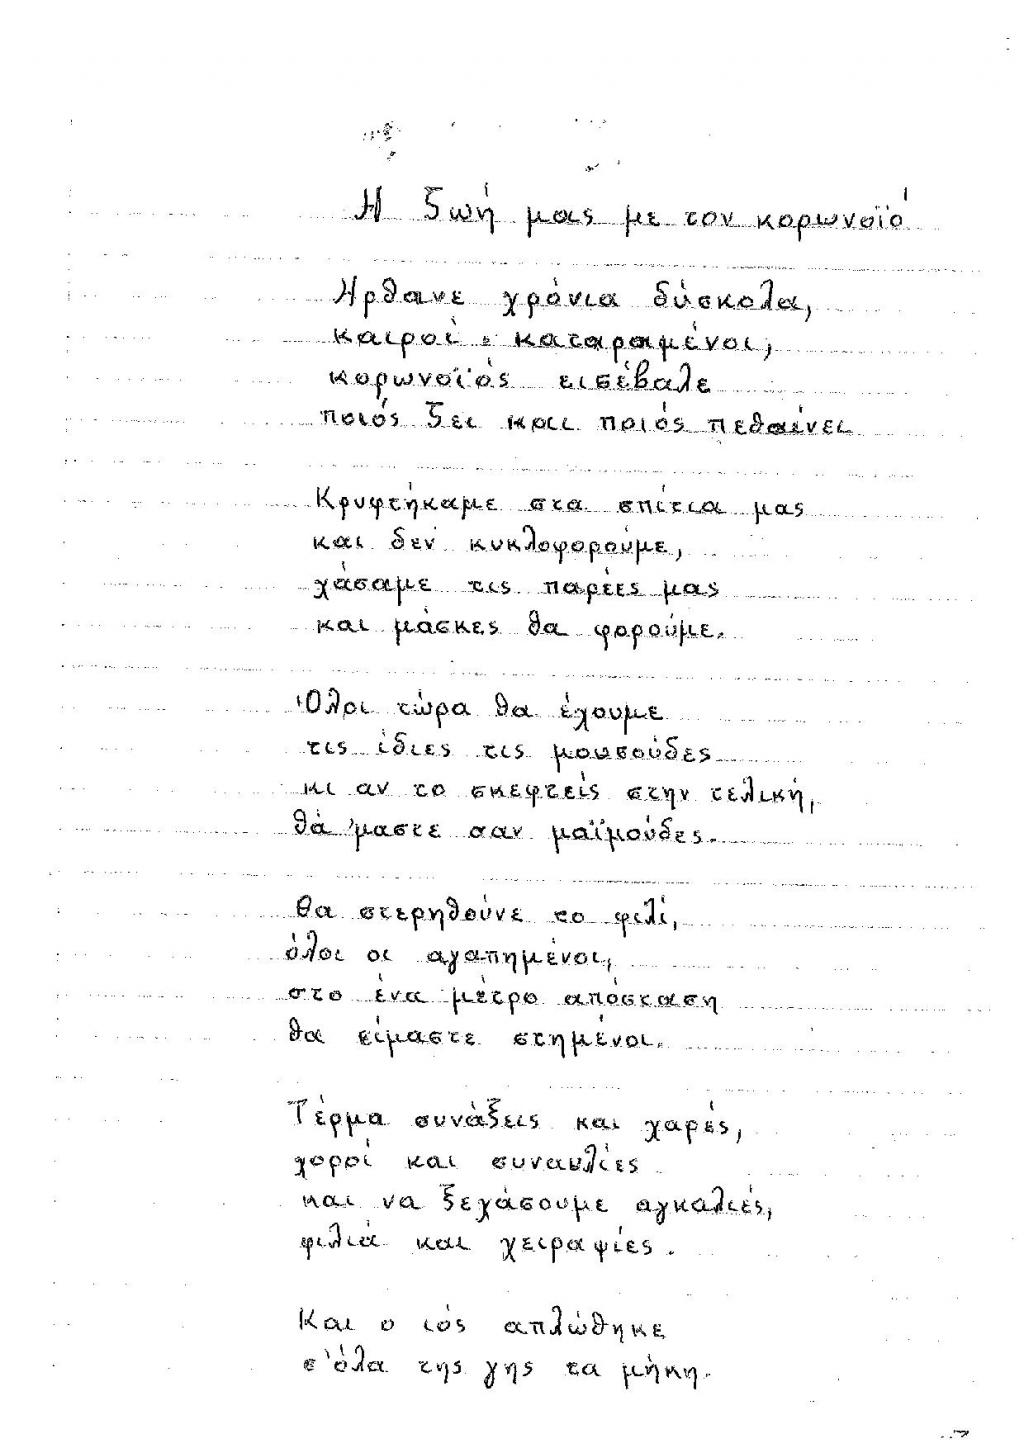 Η ζωή μας με τον κορωνοϊό
Ήρθανε χρόνια δύσκολα,
καιροί καταραμένοι,
κορωνοϊός εισέβαλε
ποιός ζει και ποιός πεθαίνει
Κρυφτήκαμε στα σπίτια μας
και δεν κυκλοφορούμε,
χάσαμε τις παρέες μας
και μάσκες θα φορούμε.
Όλοι τώρα θα έχουμε
τις ίδιες τις μουσούδες
κι αν το σκεφτείς στην τελική,
θα 'μαστε σαν μαϊμούδες.
Θα στερηθούνε το φιλί,
όλοι οι αγαπημένοι,
στο ένα μέτρο απόσταση
θα είμαστε στημένοι.
Τέρμα συνάξεις και χαρές,
χοροί και συναυλίες
και να ξεχάσουμε αγκαλιές,
φιλιά και χειραψίες.
Και ο ιός απλώθηκε
σ'όλα της γης τα μήκη.